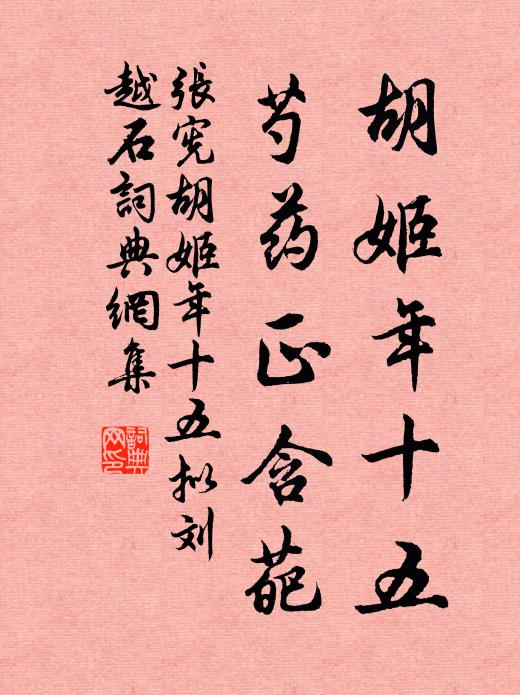 胡姬年十五
芍药正含葩
張憲胡姬年十五拟刘
越石詞典網集
詞典
网印